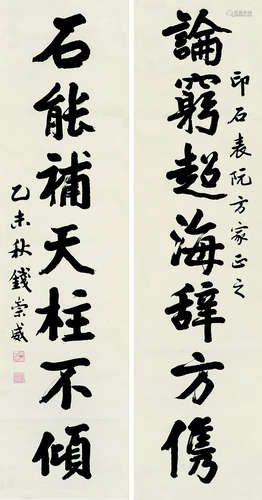 論窮超海辞方儁
印石表阮方家正之
石能補天柱不傾
乙未秋錢崇威